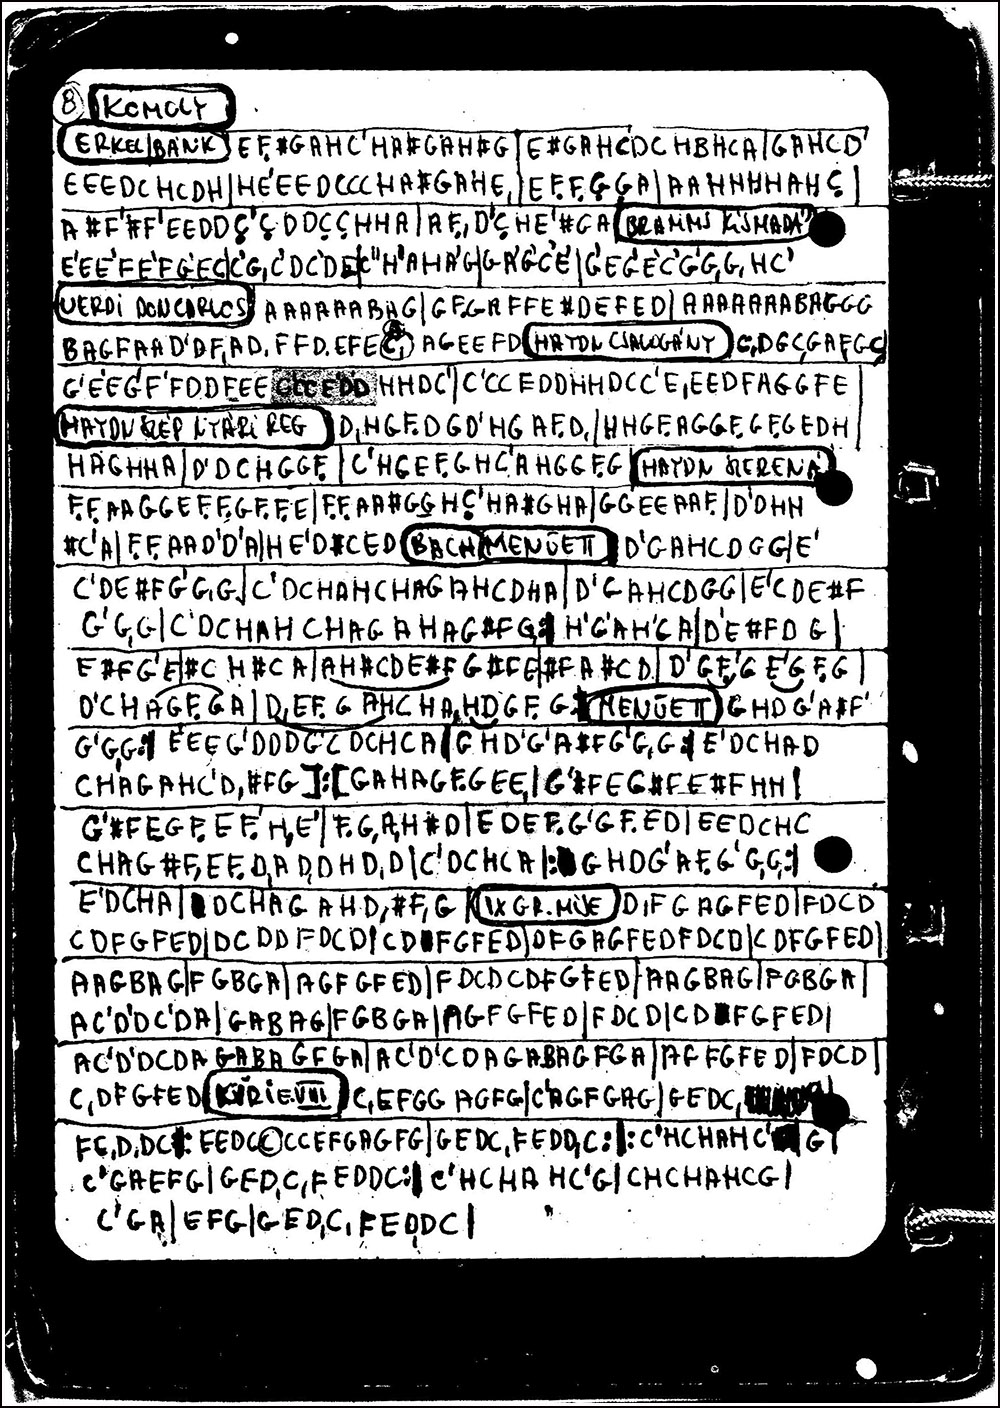 8 KOMOLY
ERKEL BÁNK EF#GAHC'HA#GAH#G|E#GAHCDCHBHCA|GAHCD'
EEEDCHCDH|HE'EEDCCCHA#GAHE,|EF.F.Ç.GA|AAHHHHAHÇ|
A#F'#F'EEDDÇ'Ç.DDÇÇHHA|AF,D'ÇHE'#GA BRAHMS KISMADÁ
E'EE'FE'FG'EC|C'G,C'DC'DE|C"H'AHA'G|G'AG'CE|G'EG'EC'G'G,G,HC'
VERDI DON CARLOS AAAAAAABAG|GF.GAFFE#DEFED|AAAAAAABAGGG
BAGFAAD'D'F,AD.FFD.EFEC, AGEEFD HAYDN CSALOGÁNY C,DGÇGAFGÇ
G'EEGF'FDDFEE CCCEDD HHDC'|C'CCEDDHHDCC'E,EEDFAGGFE|
HAYDN SZÉP NYÁRI REG D,HGF.DGD'HGAF.D.|HHGF.AGGF.GF.GEDH
HAGHHA|D'DCHGGF.|C'HGEF.GHC'AHGGF.G HAYDN SZERENÁ
F.F.AAGGEF.F.GF.F.E|F.F.AA#GGHÇ'HA#GHA|GGEEAAF.|D'DHH
#C'A|F.F.AAD'D'A|HE'D#CED BACH MENÜETT D'GAHCDGG|E'
C'DE#FG'G,G|C'DCHAHCHAGAHCDHA|D'GAHCDGG|E'CDE#F
G'G,G|C'DCHAHCHAGAHAG#FG:|H'G'AH'GA|D'E#FDG|
E#FG'E|#CH#CA|AH#CDE#FG#FE|#FA#CD|D'GF.'GE'GF.G|
D'CHAGF.GA|D,EF.GAHCHA,HDGF.G: MENÜETT GHDG'A#F'
G'GG:|EEEG'DDDG'CDCHCA|GHD'G'A#FG'G,G:|E'DCHAD
CHAGAHC'D,#FG]:[GAHAGF.GEE,|G'#FEG#FE#FHH|
G'#FEGF.EF.'H,E'|F.G,A,H#D|EDEF.G'GF.ED|EEDCHC
CHAG#F,EF.D,AD,DHD,D|C'DCHCA|:GHDG'AF.G'G,G:|
E'DCHA|DCHAGAHD,#F,G IX GR. MISE D,FGAGFED|FDCD
CDFGFED|DCDDFDCD|CDFGFED|DFGAGFEDFDCD|CDFGFED|
AAGBAG|FGBGA|AGFGFED|FDCDCDFGFED|AAGBAG|FGBGA|
AC'D'DC'DA|GABAG|FGBGA|AGFGFED|FDCD|CDFGFED|
AC'D'DCDAGABAGFGA|AC'D'CDAGABAGFGA|AGFGFED|FDCD|
C,DFGFED KYRIE VIII C,EFGGAGFG|C'AGFGAG|GEDC,
FE,D,DC:EEDCCCCEFGAGFG|GEDC,FEDD,C:|:C'HCHAHC'G|
C'GAEFG|GED,C,FEDDC:|C'HCHAHC'G|CHCHAHCG|
C'GA|EFG|GED,C,FEDDC|